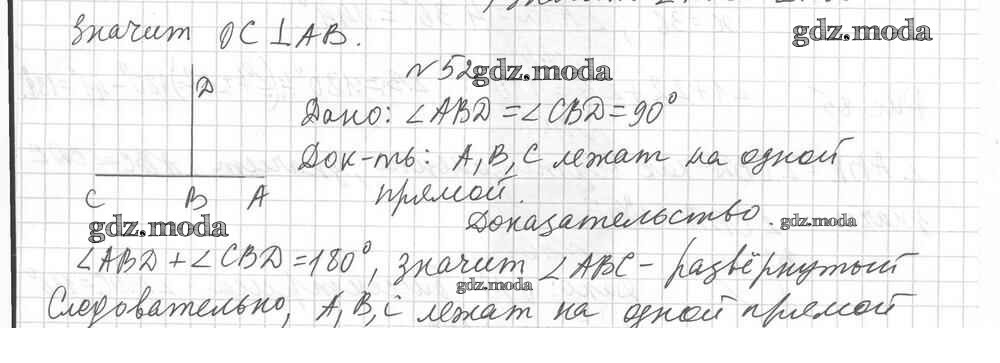 Значит OC⊥AB.
gdz.moda
N 52
gdz.moda
D
Дано: ∠ABD = ∠CBD = 90°
Док-ть: A, B, C лежат на одной
прямой.
C B A
Доказательство.
gdz.moda
gdz.moda
∠ABD + ∠CBD = 180°, значит ∠ABC - развёрнутый
gdz.moda
Следовательно, A, B, C лежат на одной прямой